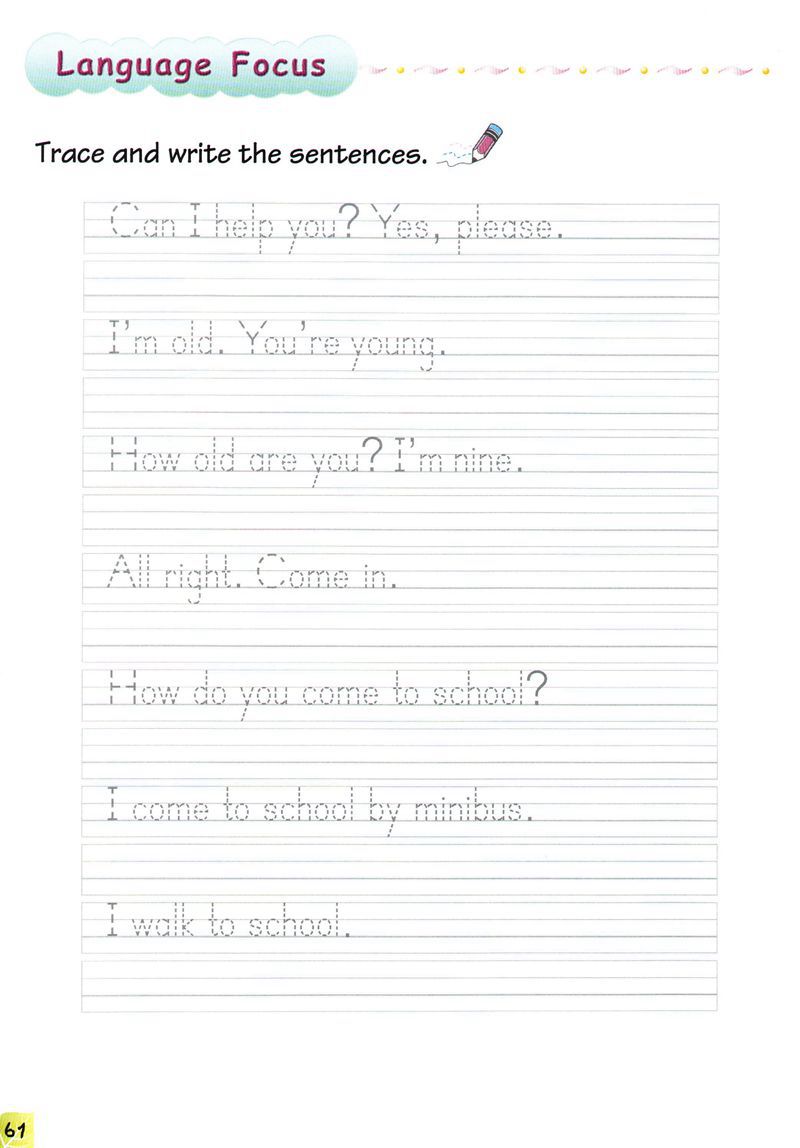 Language Focus
Trace and write the sentences.
Can I help you? Yes, please.
I'm old. You're young.
How old are you? I'm nine.
All right. Come in.
How do you come to school?
I come to school by minibus.
I walk to school.
61